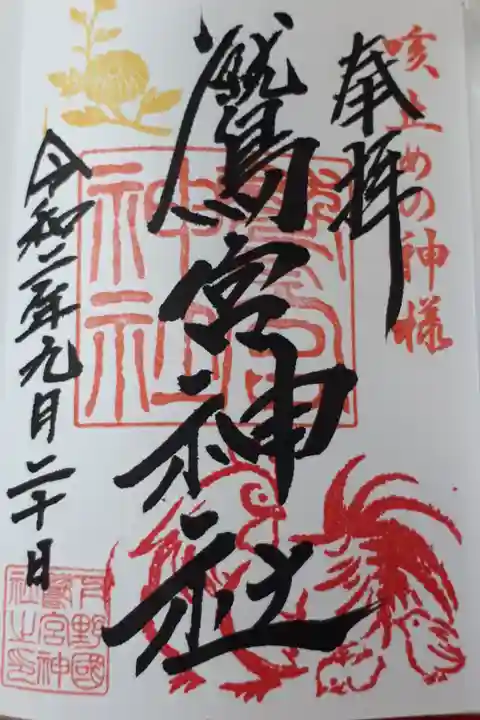 咳止めの神様
奉拝
鷲宮神社
鷲宮神社
令和二年九月二十日
下野國
鷲宮神
社之印